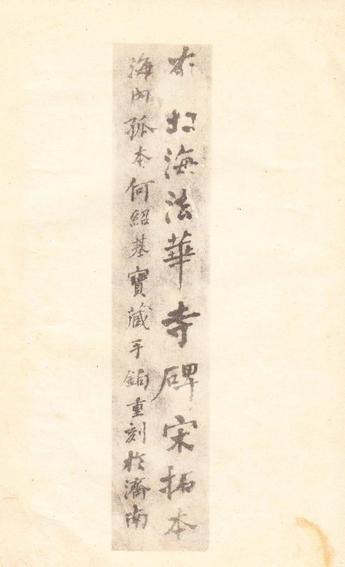 李北海法華寺碑宋拓本
海內孤本何紹基寶藏手鉤重刻於濟南